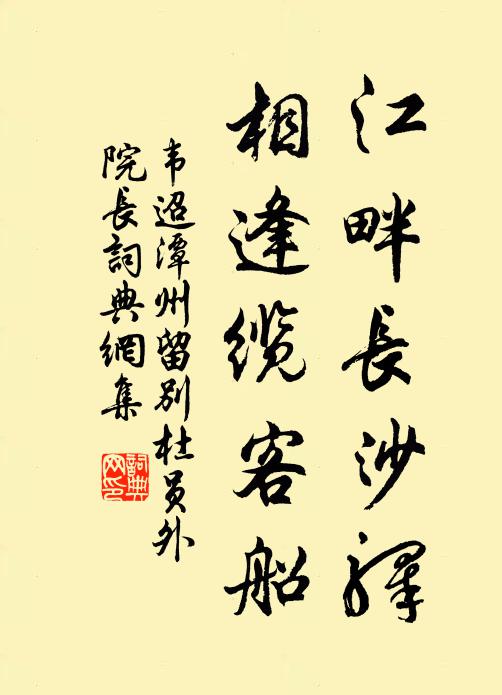 江畔長沙驛
相逢纜客船
韦迢潭州留別杜員外
院長詞典網集
詞典网印